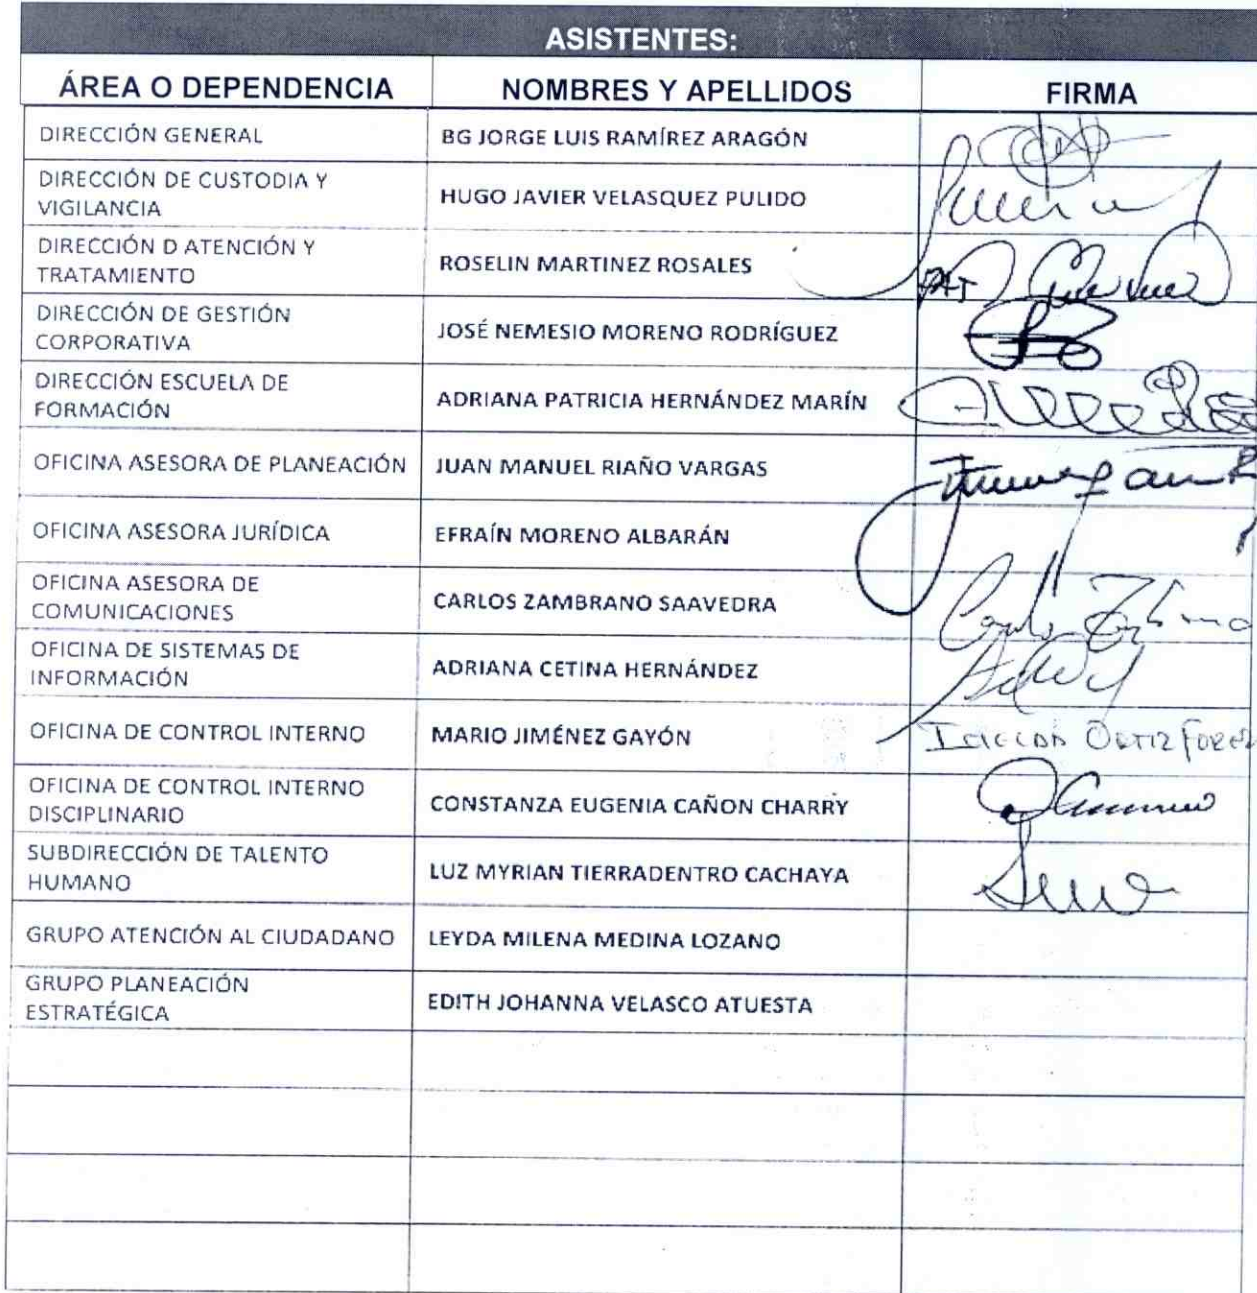 ASISTENTES:
ÁREA O DEPENDENCIA NOMBRES Y APELLIDOS FIRMA
DIRECCIÓN GENERAL BG JORGE LUIS RAMÍREZ ARAGÓN
DIRECCIÓN DE CUSTODIA Y
VIGILANCIA
HUGO JAVIER VELASQUEZ PULIDO
DIRECCIÓN D ATENCIÓN Y
TRATAMIENTO
ROSELIN MARTINEZ ROSALES
DIRECCIÓN DE GESTIÓN
CORPORATIVA
JOSÉ NEMESIO MORENO RODRÍGUEZ
DIRECCIÓN ESCUELA DE
FORMACIÓN
ADRIANA PATRICIA HERNÁNDEZ MARÍN
OFICINA ASESORA DE PLANEACIÓN JUAN MANUEL RIAÑO VARGAS
OFICINA ASESORA JURÍDICA EFRAÍN MORENO ALBARÁN
OFICINA ASESORA DE
COMUNICACIONES
CARLOS ZAMBRANO SAAVEDRA
OFICINA DE SISTEMAS DE
INFORMACIÓN
ADRIANA CETINA HERNÁNDEZ
OFICINA DE CONTROL INTERNO MARIO JIMÉNEZ GAYÓN ORTIZ
OFICINA DE CONTROL INTERNO
DISCIPLINARIO
CONSTANZA EUGENIA CAÑON CHARRY
SUBDIRECCIÓN DE TALENTO
HUMANO
LUZ MYRIAN TIERRADENTRO CACHAYA
GRUPO ATENCIÓN AL CIUDADANO LEYDA MILENA MEDINA LOZANO
GRUPO PLANEACIÓN
ESTRATÉGICA
EDITH JOHANNA VELASCO ATUESTA